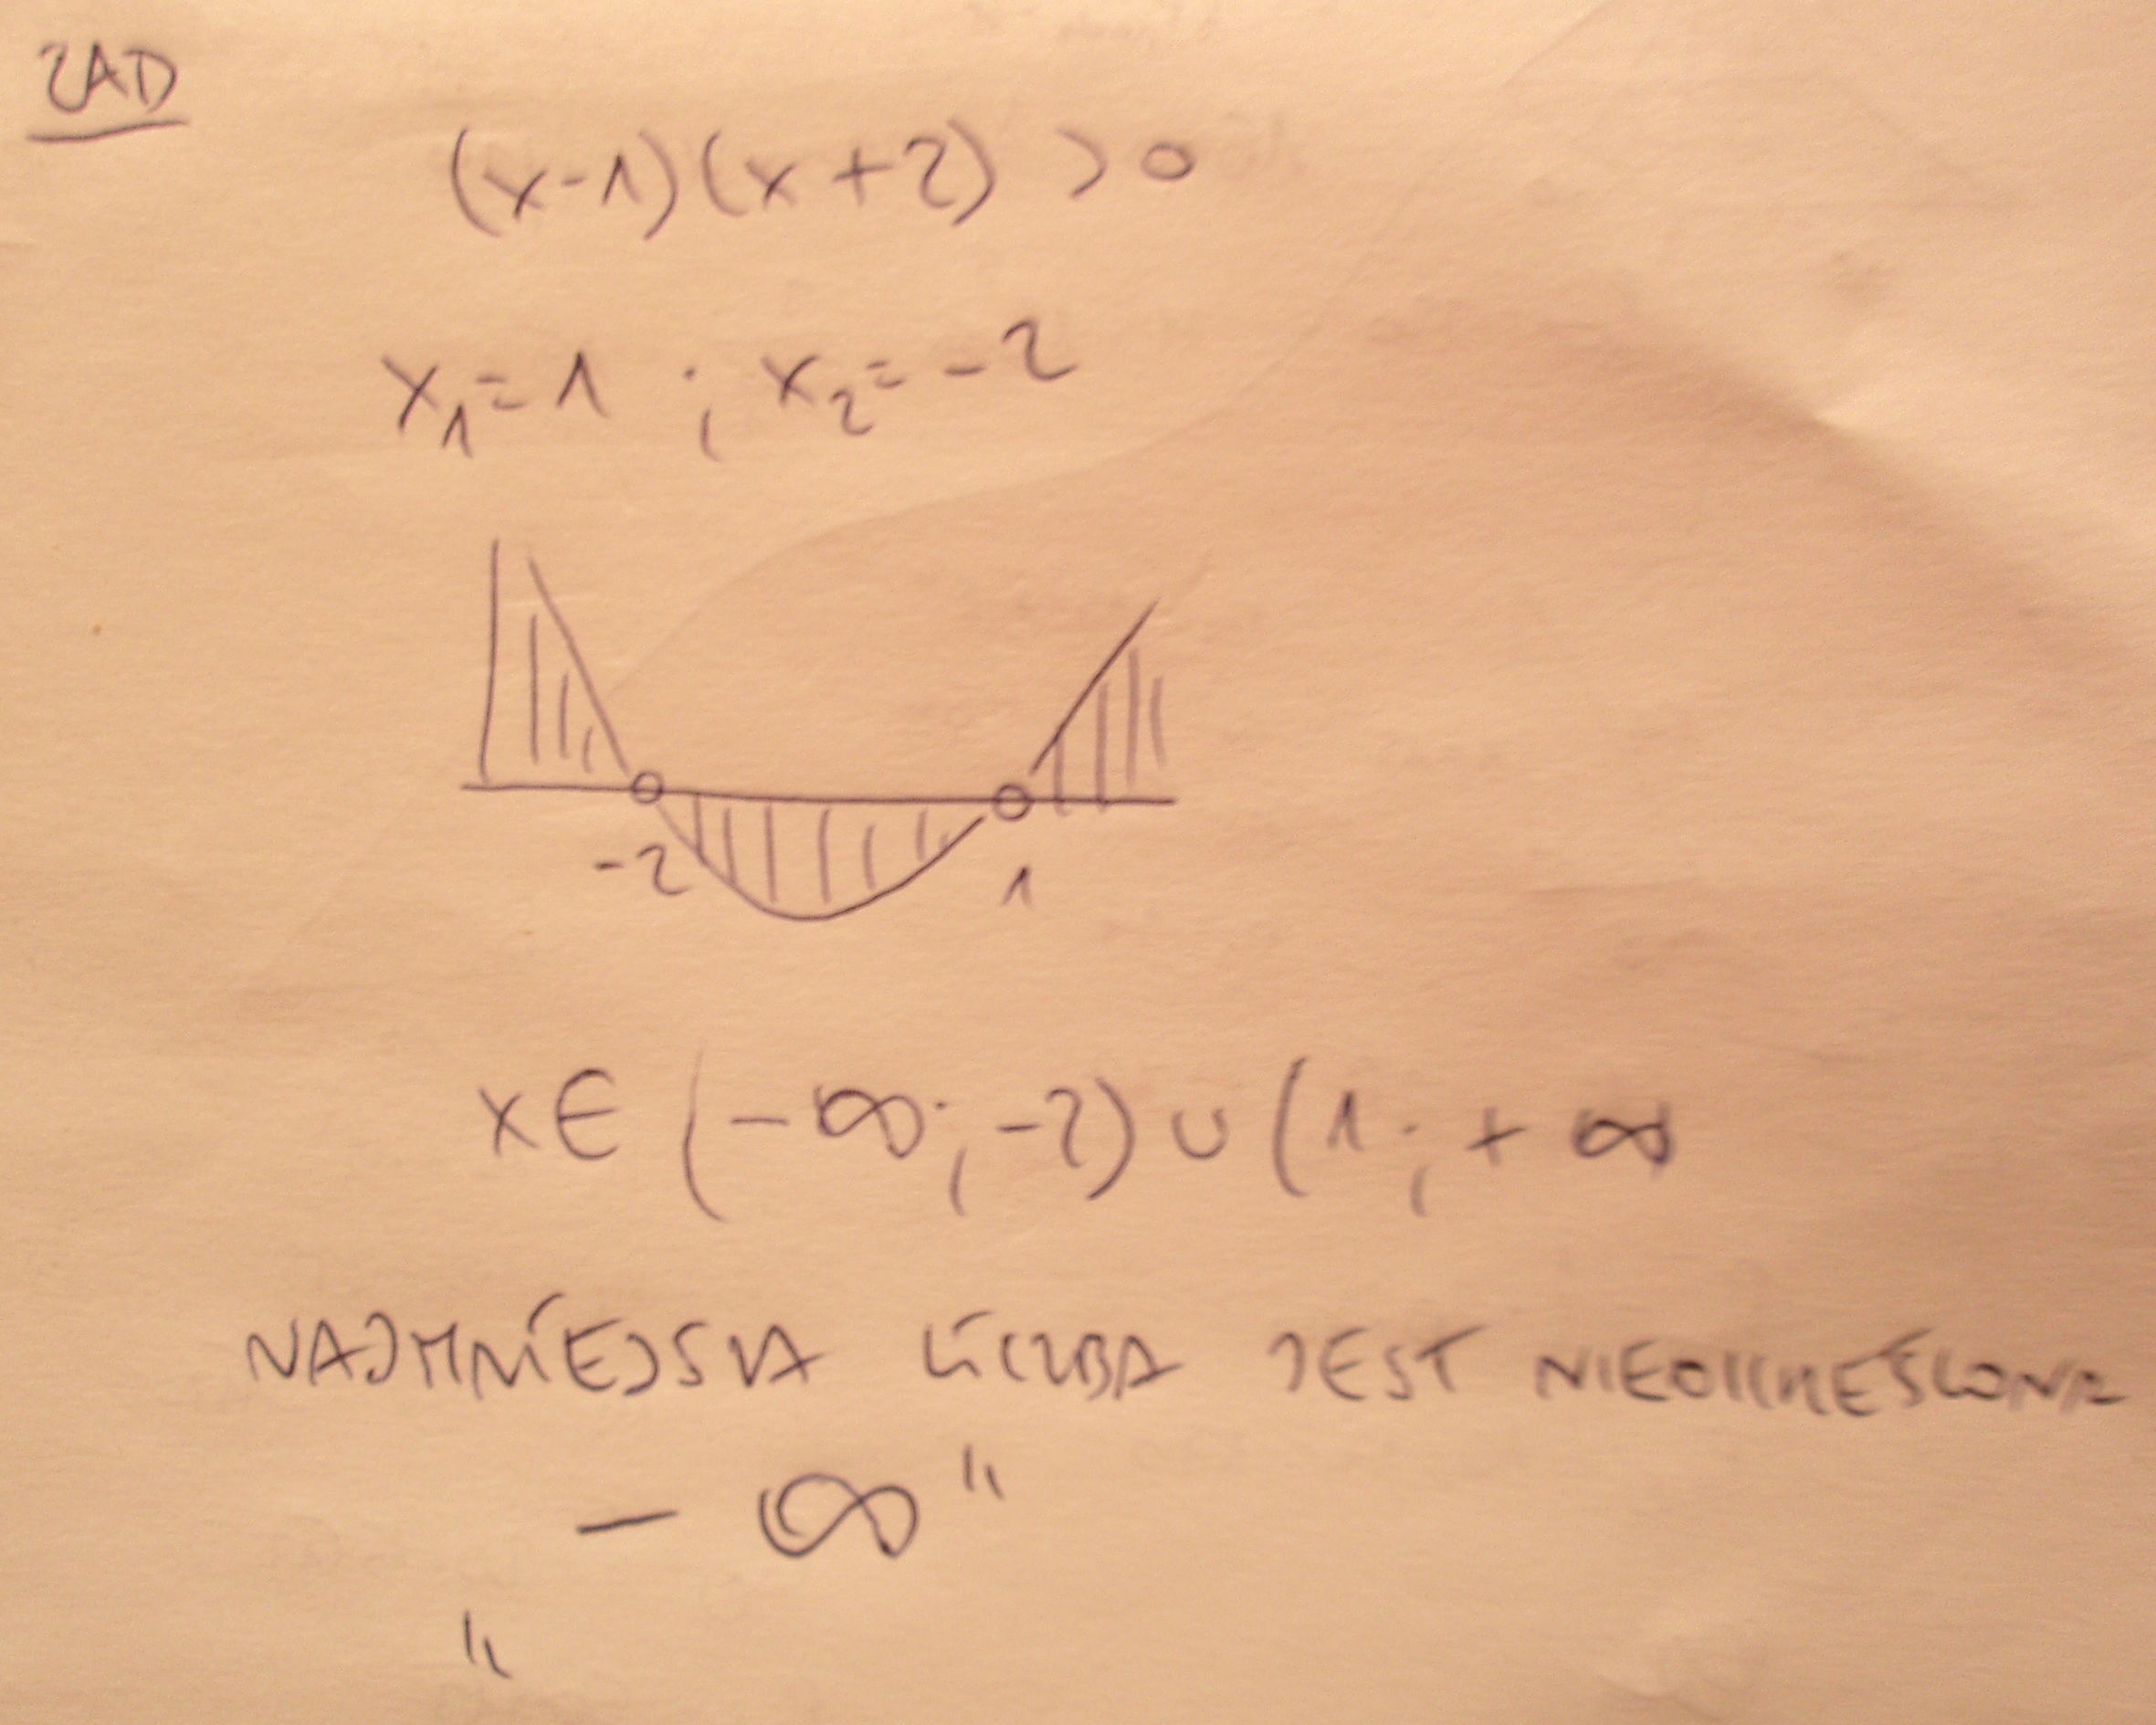 ZAD
(x-1)(x+2) >0
x₁=1 ; x₂=-2
-2 1
x∈ (-∞; -2) ∪ (1; +∞
NAJMNIEJSZA LICZBA JEST NIEOKREŚLONA
- ∞"
"